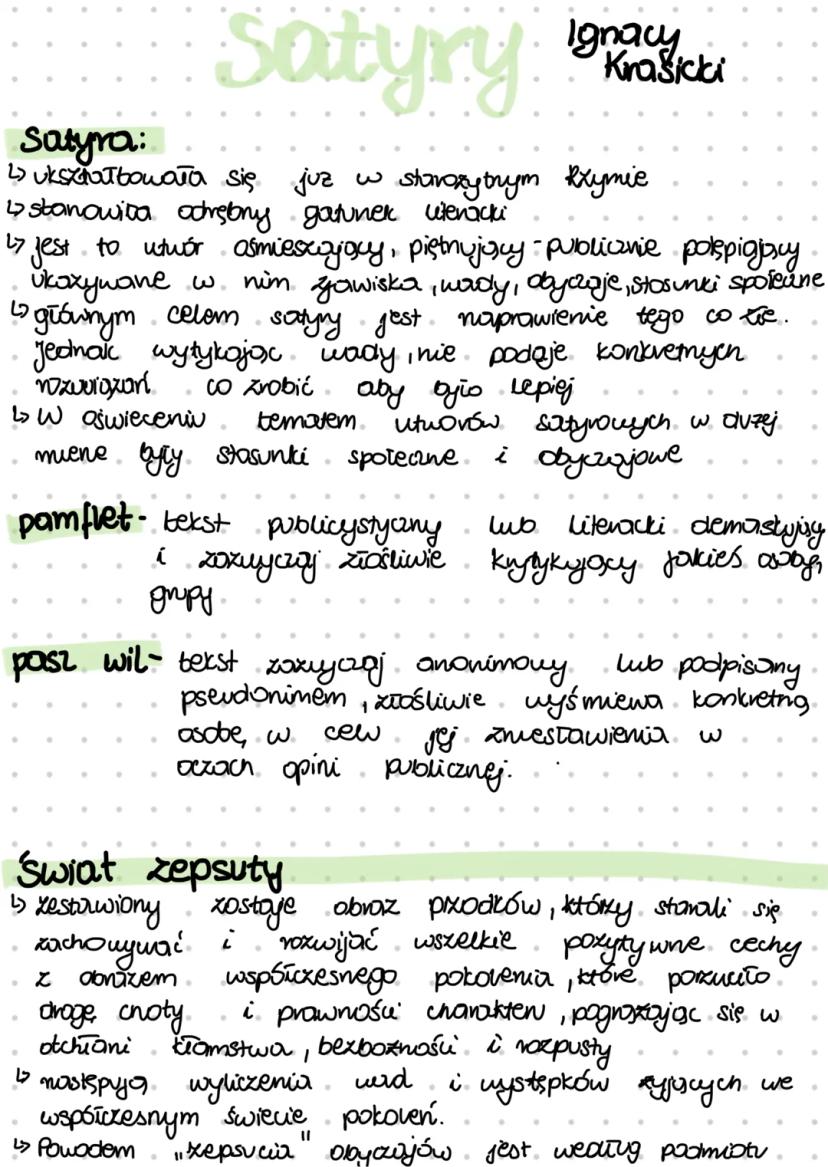 Satyry
Ignacy
Krasicki
Satyra:
↳ ukształtowała się już w starożytnym Rzymie
↳ stanowiła odrębny gatunek literacki
↳ jest to utwór ośmieszający, piętnujący - publicznie potępiający
ukazywane w nim zjawiska, wady, obyczaje, stosunki społeczne
↳ głównym celem satyry jest naprawienie tego co złe.
Jednak wytykając wady, nie podaje konkretnych
rozwiązań co zrobić aby było lepiej
↳ W oświeceniu tematem utworów satyrowych w dużej
mierze były stosunki społeczne i obyczajowe
pamflet - tekst publicystyczny lub literacki demaskujący
i zazwyczaj złośliwie krytykujący jakieś osoby,
grupy
pasz wil - tekst zazwyczaj anonimowy lub podpisany
pseudonimem, złośliwie wyśmiewa konkretną
osobę, w celu jej zniesławienia w
oczach opini publicznej.
Świat zepsuty
↳ zestawiony zostaje obraz przodków, którzy starali się
zachowywać i rozwijać wszelkie pozytywne cechy
z obrazem współczesnego pokolenia, które porzuciło
drogę cnoty i prawności charakteru, pogrążając się w
otchłani kłamstwa, bezbożności i rozpusty
↳ następują wyliczenia wad i występków żyjących we
współczesnym świecie pokoleń.
↳ Powodem "zepsucia" obyczajów jest według podmiotu